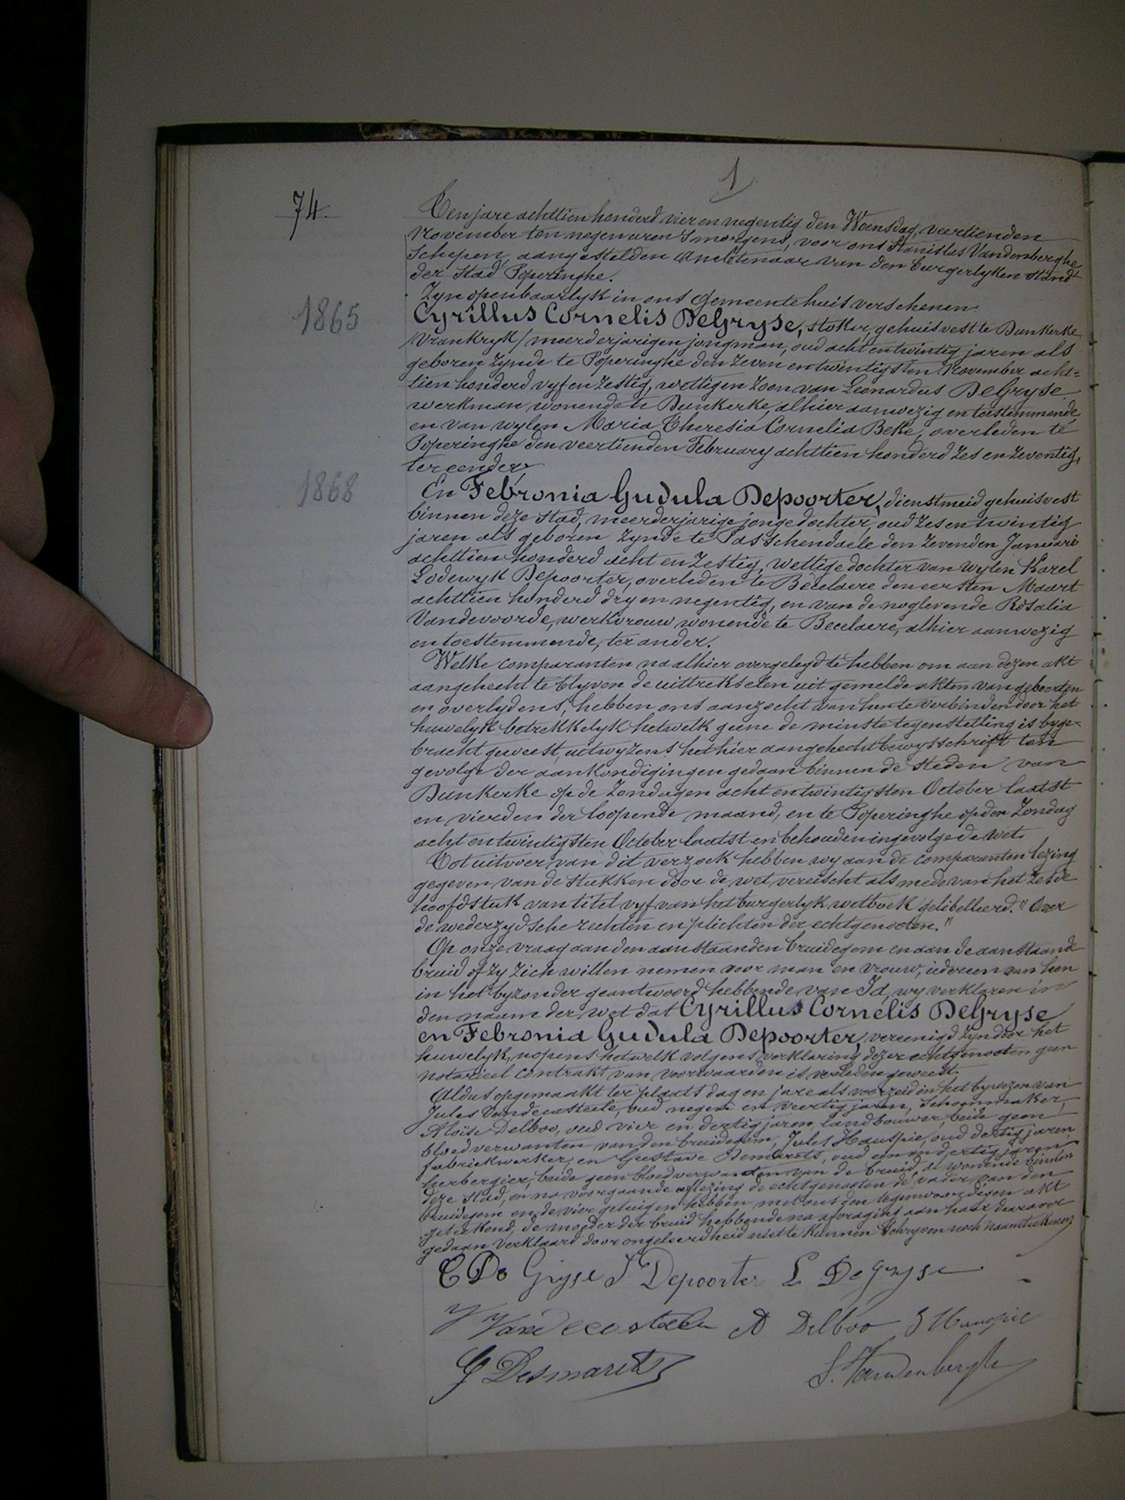 1
74.
Ten jare achttien honderd vier en negentig den Woensdag veertienden
November ten negen uren 's morgens, voor ons Stanislas Vandenberghe
Schepen, aangestelden Ambtenaar van den burgerlyken stand
der Stad Poperinghe.
Zyn openbaarlyk in ons gemeentehuis verschenen
1865
Cyrillus Cornelis DeGryse, stoker, gehuisvest te Dunkerke
Vrankryk, meerderjarigen jongman, oud acht en twintig jaren als
geboren zynde te Poperinghe den zeven en twintigsten November acht-
tien honderd vyf en zestig, wettigen zoon van Leonardus DeGryse
werkman wonende te Dunkerke, alhier aanwezig en toestemmende,
en van wylen Maria Theresia Cornelia Beke, overleden te
Poperinghe den veertienden February achttien honderd zes en zeventig,
ter eender
1868
En Febronia Gudula Depoorter, dienstmeid gehuisvest
binnen deze stad, meerderjarige jonge dochter, oud zes en twintig
jaren als geboren zynde te Passchendaele den zevenden Januari
achttien honderd acht en zestig, wettige dochter van wylen Karel
Lodewyk Depoorter, overleden te Becelaere den eersten Maart
achttien honderd dry en negentig, en van de noglevende Rosalia
Vandevoorde, werkvrouw wonende te Becelaere, alhier aanwezig
en toestemmende, ter ander.
Welke comparanten na alhier overgelegd te hebben om aan dezen akt
aangehecht te blyven de uittrekselen uit gemelde akten van geboorten
en overlydens, hebben ons aanzocht van hun te verbinden door het
huwelyk betrekkelyk hetwelk geene de minste tegenstelling is byge-
bracht geweest, uitwyzens het hier aangehecht bewysschrift ten
gevolge der aankondigingen gedaan binnen de steden van
Dunkerke op de Zondagen acht en twintigsten October laatst
en vierden der loopende maand, en te Poperinghe op den Zondag
acht en twintigsten October laatst en behouden ingevolge de wet.
Tot uitvoer van dit verzoek hebben wy aan de comparanten lezing
gegeven van de stukken door de wet vereischt als mede van het zesde
hoofdstuk van titel vyf van het burgerlyk wetboek gelibelleerd: "Over
de wederzydsche rechten en plichten der echtgenooten."
Op onze vraag aan den aanstaanden bruidegom en aan de aanstaande
bruid of zy zich willen nemen voor man en vrouw, iedereen van hen
in het byzonder geantwoord hebbende van Ja, wy verklaren in
den naam der wet dat Cyrillus Cornelis DeGryse
en Febronia Gudula Depoorter, vereenigd zyn door het
huwelyk, nopens hetwelk volgens verklaring dezer echtgenooten geen
notarieel contrakt van voorwaarden is verleden geweest.
Aldus opgemaakt ter plaats dag en jare als voorzeid in het bywezen van
Jules Vandecasteele, oud negen en veertig jaren, schoenmaker,
Aloïse Delboo, oud vier en dertig jaren landbouwer, beide geen
bloedverwanten van den bruidegom, Jules Hauspie, oud dertig jaren
fabriekwerker, en Gustave Desmarets, oud een en dertig jaren
herbergier, beide geen bloedverwanten van de bruid, al wonende binnen
deze stad, en na voorgaande aflezing de echtgenooten de vader van den
bruidegom en de vier getuigen hebben met ons den tegenwoordigen akt
geteekend, de moeder der bruid hebbende na afvraging aan haar daarover
gedaan verklaard door ongeleerdheid niet te kunnen schryven noch naamteekenen
C De Gryse F Depoorter L DeGryse
J Vandecasteele A Delboo J Hauspie
G Desmarets S. Vandenberghe